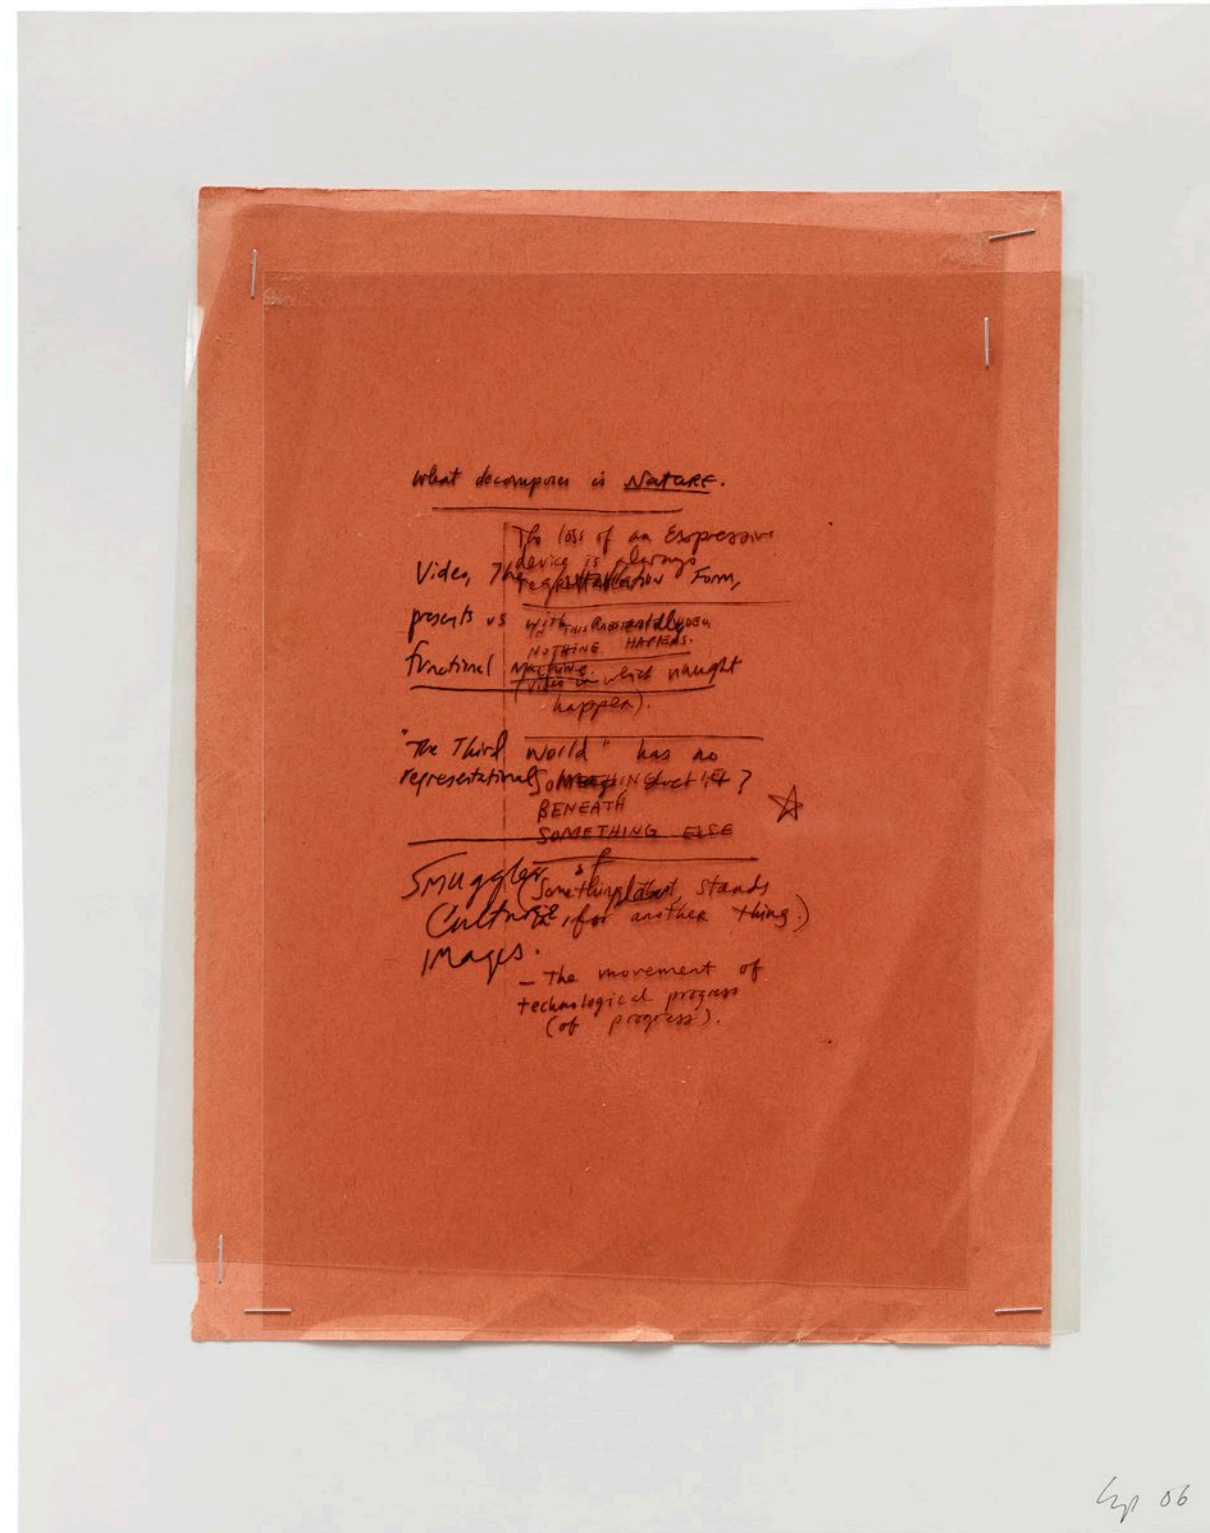 What decomposes is NATURE.
The loss of an Expressive
device is always
Video, The Form,
presents us with
IN THIS
NOTHING HAPPENS.
functional Machine.
(video in which naught
happen).
"The Third World" has no
representational
SOMETHING
BENEATH
SOMETHING ELSE
Smuggler of
(Something that stands
Culture for another thing.)
Images.
- The movement of
technological progress
(of progress).
06